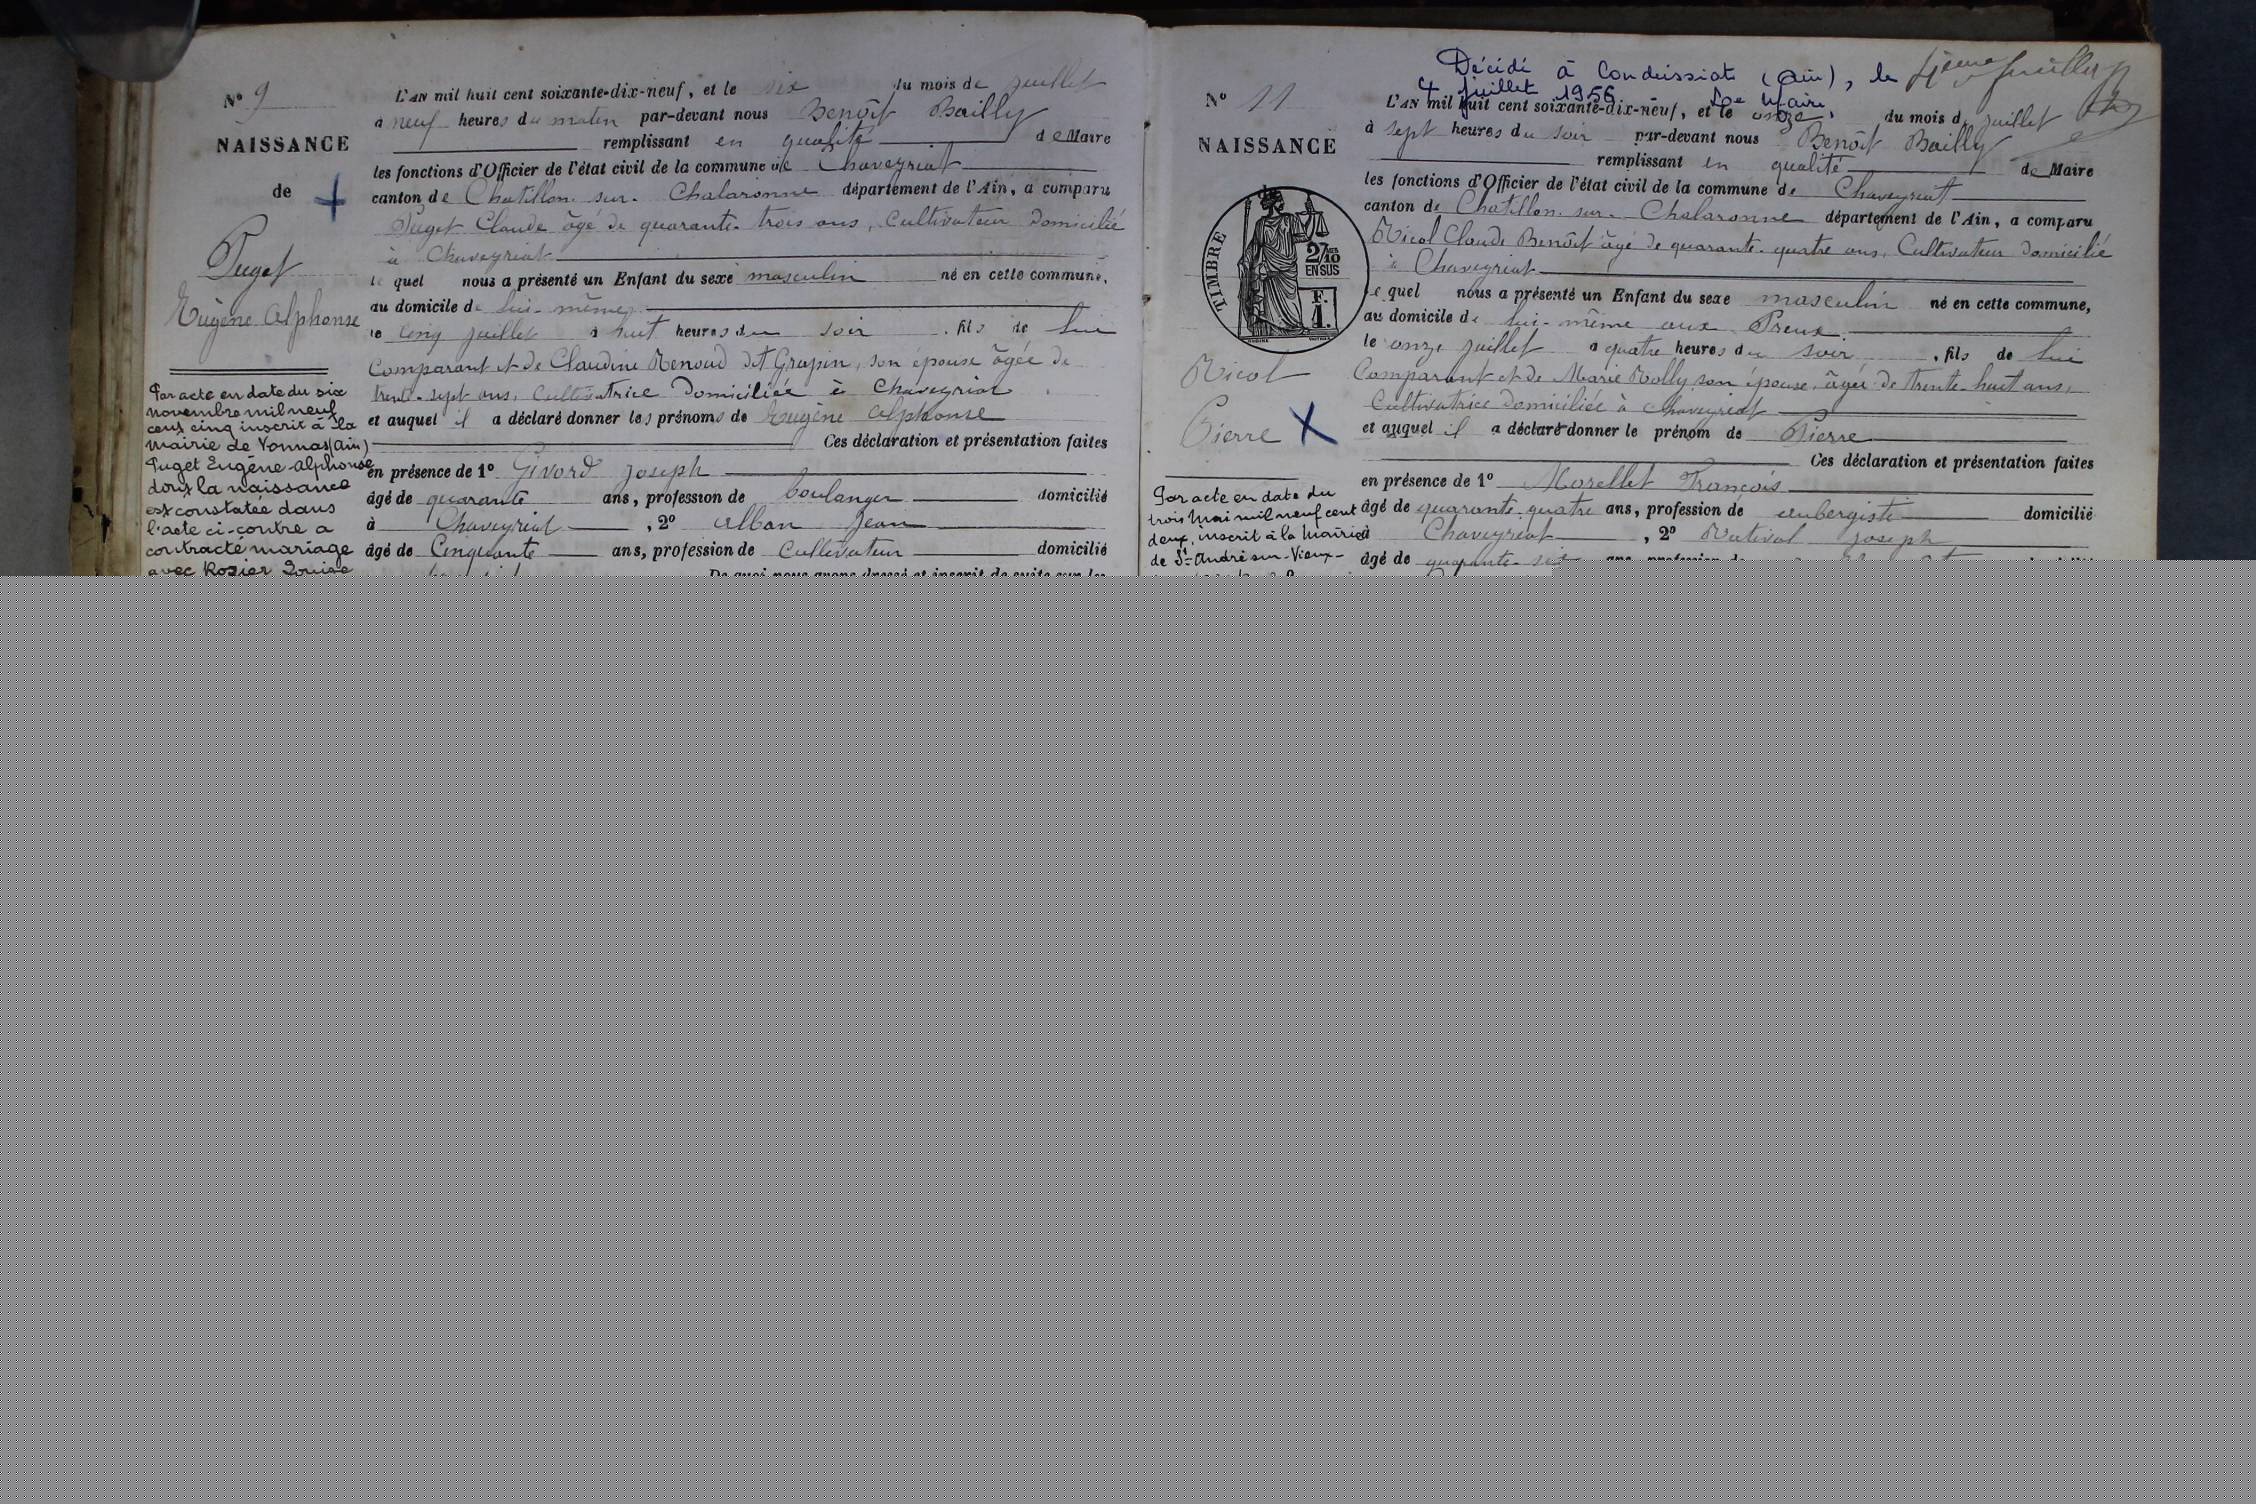 N° 9
NAISSANCE
de
Puget
Eugène Alphonse
Par acte en date du six
novembre mil neuf
cent cinq inscrit à la
mairie de Vonnas (Ain)
Puget Eugène Alphonse
dont la naissance
est constatée dans
l'acte ci-contre a
contracté mariage
avec Rozier Louise
L'AN mil huit cent soixante-dix-neuf, et le six du mois de juillet
à neuf heures du matin par-devant nous Benoît Bailly
remplissant en qualité de Maire
les fonctions d'Officier de l'état civil de la commune de Chaveyriat
canton de Chatillon sur Chalaronne département de l'Ain, a comparu
Puget Claude âgé de quarante-trois ans, Cultivateur domicilié
à Chaveyriat
le quel nous a présenté un Enfant du sexe masculin né en cette commune,
au domicile de lui-même
le cinq juillet à huit heures du soir, fils de lui
Comparant et de Claudine Renoud dit Grapin, son épouse âgée de
trente-sept ans, Cultivatrice domiciliée à Chaveyriat
et auquel il a déclaré donner les prénoms de Eugène Alphonse
Ces déclaration et présentation faites
en présence de 1° Givord Joseph
âgé de quarante ans, profession de boulanger domicilié
à Chaveyriat, 2° Alban Jean
âgé de Cinquante ans, profession de Cultivateur domicilié
De quoi nous avons dressé et inscrit de suite sur les
N° 11
NAISSANCE
TIMBRE
2/10 EN SUS
F. 1.
Nicol
Pierre
Par acte en date du
trois Mai mil neuf cent
deux, inscrit à la Mairie
de St-André-sur-Vieux-
Décédé à Condeissiat (Ain), le
4 juillet 1956 Le Maire,
L'AN mil huit cent soixante-dix-neuf, et le onze du mois de juillet
à sept heures du soir par-devant nous Benoît Bailly
remplissant en qualité de Maire
les fonctions d'Officier de l'état civil de la commune de Chaveyriat
canton de Chatillon sur Chalaronne département de l'Ain, a comparu
Nicol Claude Benoît âgé de quarante-quatre ans, Cultivateur domicilié
à Chaveyriat
le quel nous a présenté un Enfant du sexe masculin né en cette commune,
au domicile de lui-même aux Preux
le onze juillet à quatre heures du soir, fils de lui
Comparant et de Marie Rolly son épouse, âgée de trente-huit ans,
Cultivatrice domiciliée à Chaveyriat
et auquel il a déclaré donner le prénom de Pierre
Ces déclaration et présentation faites
en présence de 1° Morellet François
âgé de quarante-quatre ans, profession de aubergiste domicilié
à Chaveyriat, 2° Joseph
âgé de quarante-six ans, profession de